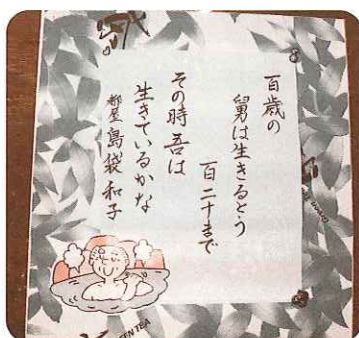 百歳の
舅は生きるとう
百二十まで
その時吾は
生きているかな
都屋 島袋和子
GREEN TEA